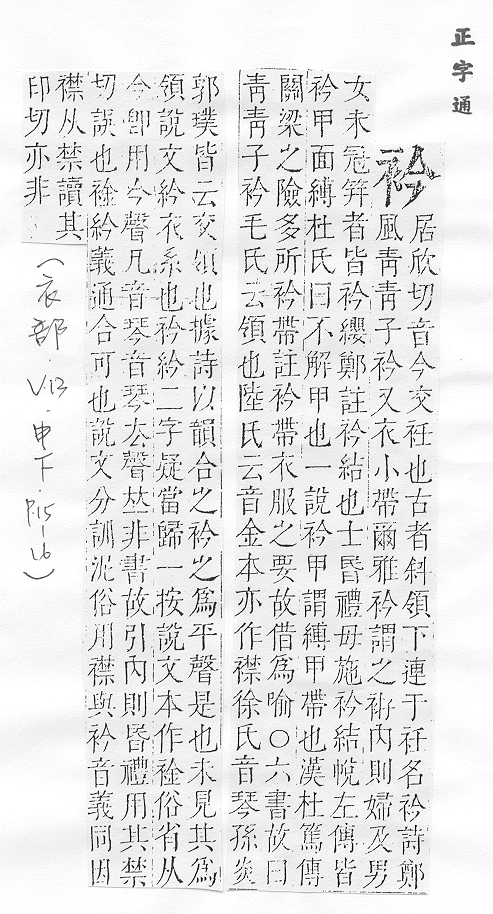 正字通
衿
居欣切音今交衽也古者斜領下連于衽名衿詩鄭
風靑靑子衿又衣小帶爾雅衿謂之袸內則婦及男
女未冠笄者皆衿纓鄭註衿結也士昏禮母施衿結帨左傳皆
衿甲面縛杜氏曰不解甲也一說衿甲謂縛甲帶也漢杜篤傳
關梁之險多所衿帶註衿帶衣服之要故借爲喻○六書故曰
靑靑子衿毛氏云領也陸氏云音金本亦作襟徐氏音琴孫炎
郭璞皆云交領也據詩以韻合之衿之爲平聲是也未見其爲
領說文紟衣系也衿紟二字疑當歸一按說文本作䘳俗省从
今卽用今聲凡音琴音琴去聲𠀤非書故引內則昏禮用其禁
切誤也䘳紟義通合可也說文分訓泥俗用襟與衿音義同因
襟从禁讀其
印切亦非
(衣部．V13．申下．P15-16)